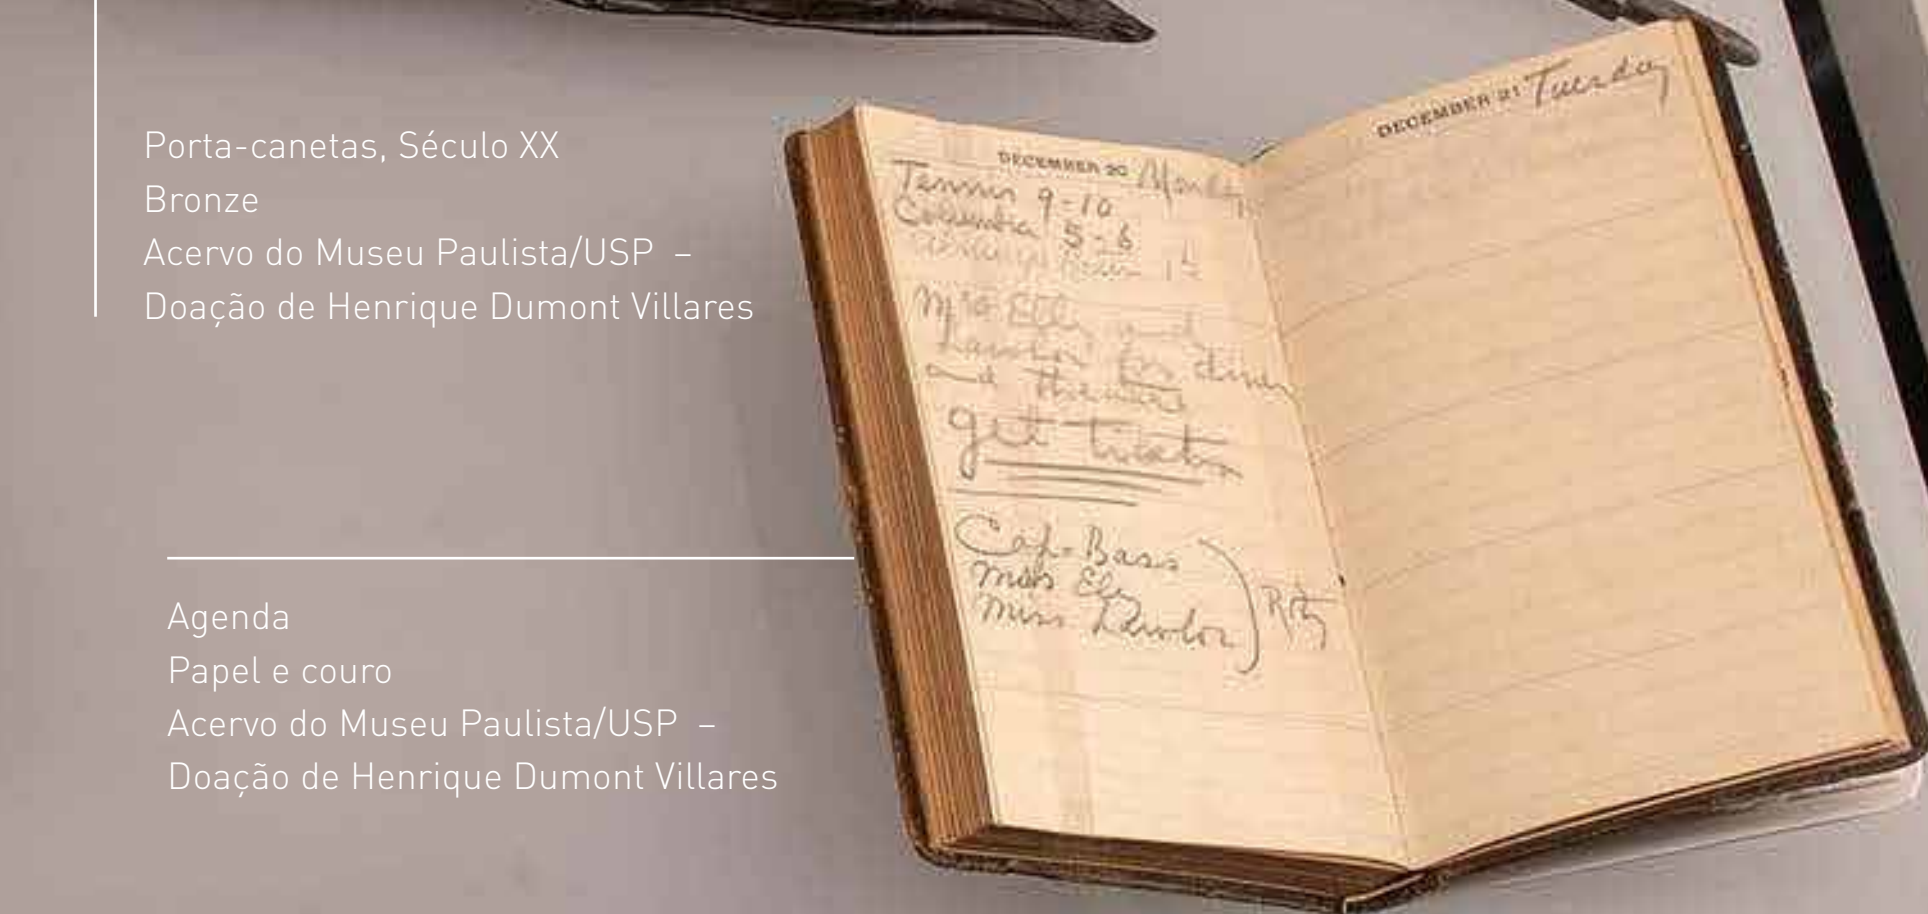 Porta-canetas, Século XX
Bronze
Acervo do Museu Paulista/USP –
Doação de Henrique Dumont Villares
Agenda
Papel e couro
Acervo do Museu Paulista/USP –
Doação de Henrique Dumont Villares
DECEMBER 20
Tennis 9-10
Columbia 5-6
and
for diner
and Theatre
get
Cap-Bass
Miss
Miss Lawlor
Ritz
DECEMBER 21 Tuesday